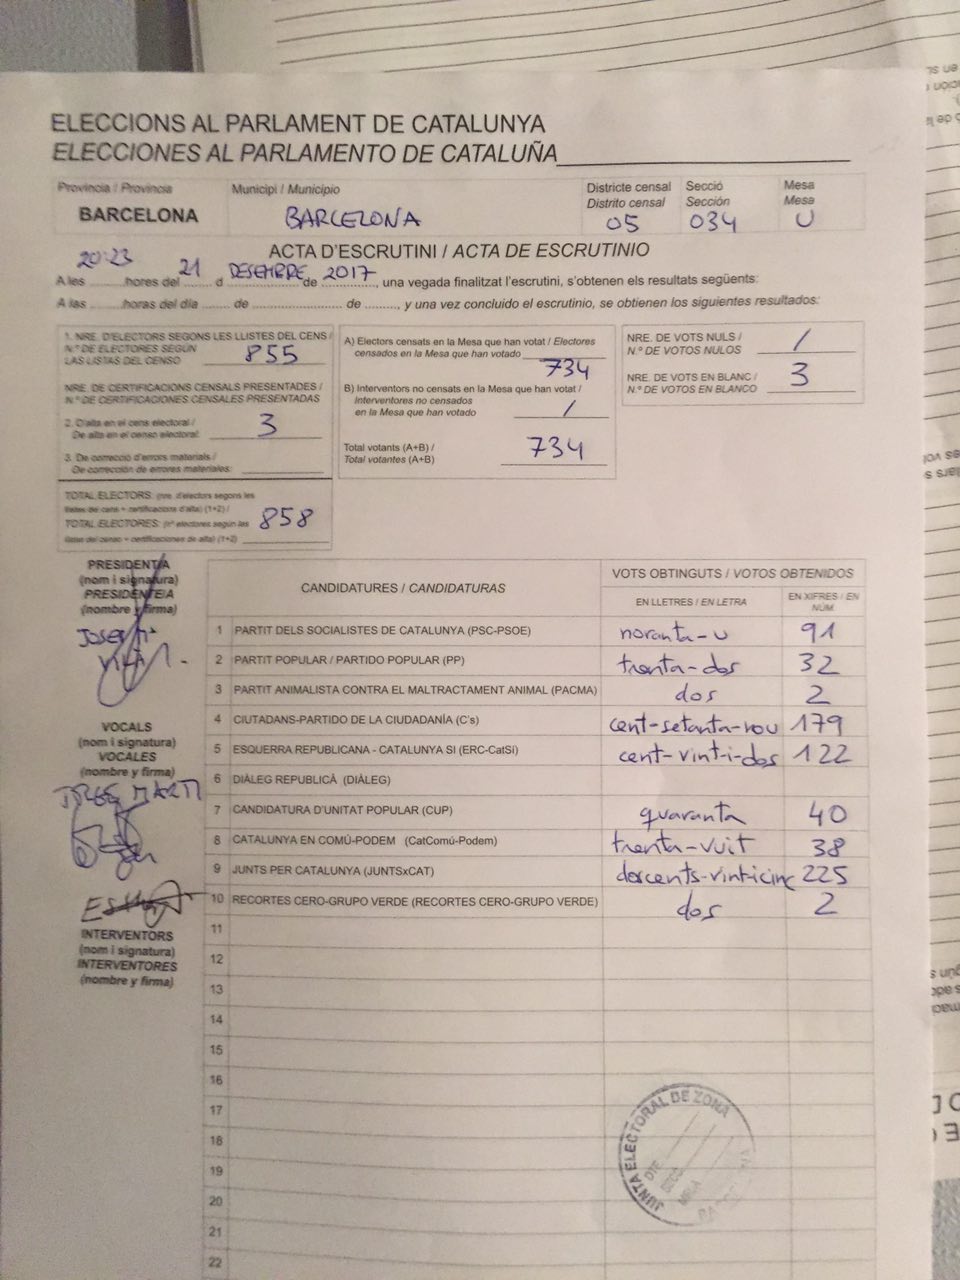 ELECCIONS AL PARLAMENT DE CATALUNYA
ELECCIONES AL PARLAMENTO DE CATALUÑA
Provincia / Provincia
BARCELONA
Municipi / Municipio
BARCELONA
Districte censal
Distrito censal
05
Secció
Sección
034
Mesa
Mesa
U
ACTA D'ESCRUTINI / ACTA DE ESCRUTINIO
A les 20:23 hores del 21 d DESEMBRE de 2017, una vegada finalitzat l'escrutini, s'obtenen els resultats següents:
A las ........ horas del día ....... de ........................ de ............, y una vez concluido el escrutinio, se obtienen los siguientes resultados:
1. NRE. D'ELECTORS SEGONS LES LLISTES DEL CENS /
N.º DE ELECTORES SEGÚN
LAS LISTAS DEL CENSO 855
NRE. DE CERTIFICACIONS CENSALS PRESENTADES /
N.º DE CERTIFICACIONES CENSALES PRESENTADAS
2. D'alta en el cens electoral /
De alta en el censo electoral: 3
3. De correcció d'errors materials /
De corrección de errores materiales:
TOTAL ELECTORS: (nre. d'electors segons les
llistes de cens + certificacions d'alta) (1+2) /
TOTAL ELECTORES: (nº electores según las
listas del censo + certificaciones de alta) (1+2) 858
A) Electors censats en la Mesa que han votat / Electores
censados en la Mesa que han votado 734
B) Interventors no censats en la Mesa que han votat /
Interventores no censados
en la Mesa que han votado /
Total votants (A+B) /
Total votantes (A+B) 734
NRE. DE VOTS NULS /
N.º DE VOTOS NULOS /
NRE. DE VOTS EN BLANC /
N.º DE VOTOS EN BLANCO 3
PRESIDENT/A
(nom i signatura)
PRESIDENTE/A
(nombre y firma)
JOSEP Mª
VOCALS
(nom i signatura)
VOCALES
(nombre y firma)
JORGE MARTI
INTERVENTORS
(nom i signatura)
INTERVENTORES
(nombre y firma)
CANDIDATURES / CANDIDATURAS
VOTS OBTINGUTS / VOTOS OBTENIDOS
EN LLETRES / EN LETRA
EN XIFRES / EN
NÚM.
1 PARTIT DELS SOCIALISTES DE CATALUNYA (PSC-PSOE) noranta-u 91
2 PARTIT POPULAR / PARTIDO POPULAR (PP) trenta-dos 32
3 PARTIT ANIMALISTA CONTRA EL MALTRACTAMENT ANIMAL (PACMA) dos 2
4 CIUTADANS-PARTIDO DE LA CIUDADANÍA (C's) cent-setanta-nou 179
5 ESQUERRA REPUBLICANA - CATALUNYA SI (ERC-CatSí) cent-vint-i-dos 122
6 DIÀLEG REPUBLICÀ (DIÀLEG)
7 CANDIDATURA D'UNITAT POPULAR (CUP) quaranta 40
8 CATALUNYA EN COMÚ-PODEM (CatComú-Podem) trenta-vuit 38
9 JUNTS PER CATALUNYA (JUNTSxCAT) doscents-vinticinc 225
10 RECORTES CERO-GRUPO VERDE (RECORTES CERO-GRUPO VERDE) dos 2
11
12
13
14
15
16
17
18
19
20
21
22
JUNTA ELECTORAL DE ZONA
DTE
SECC
MESA